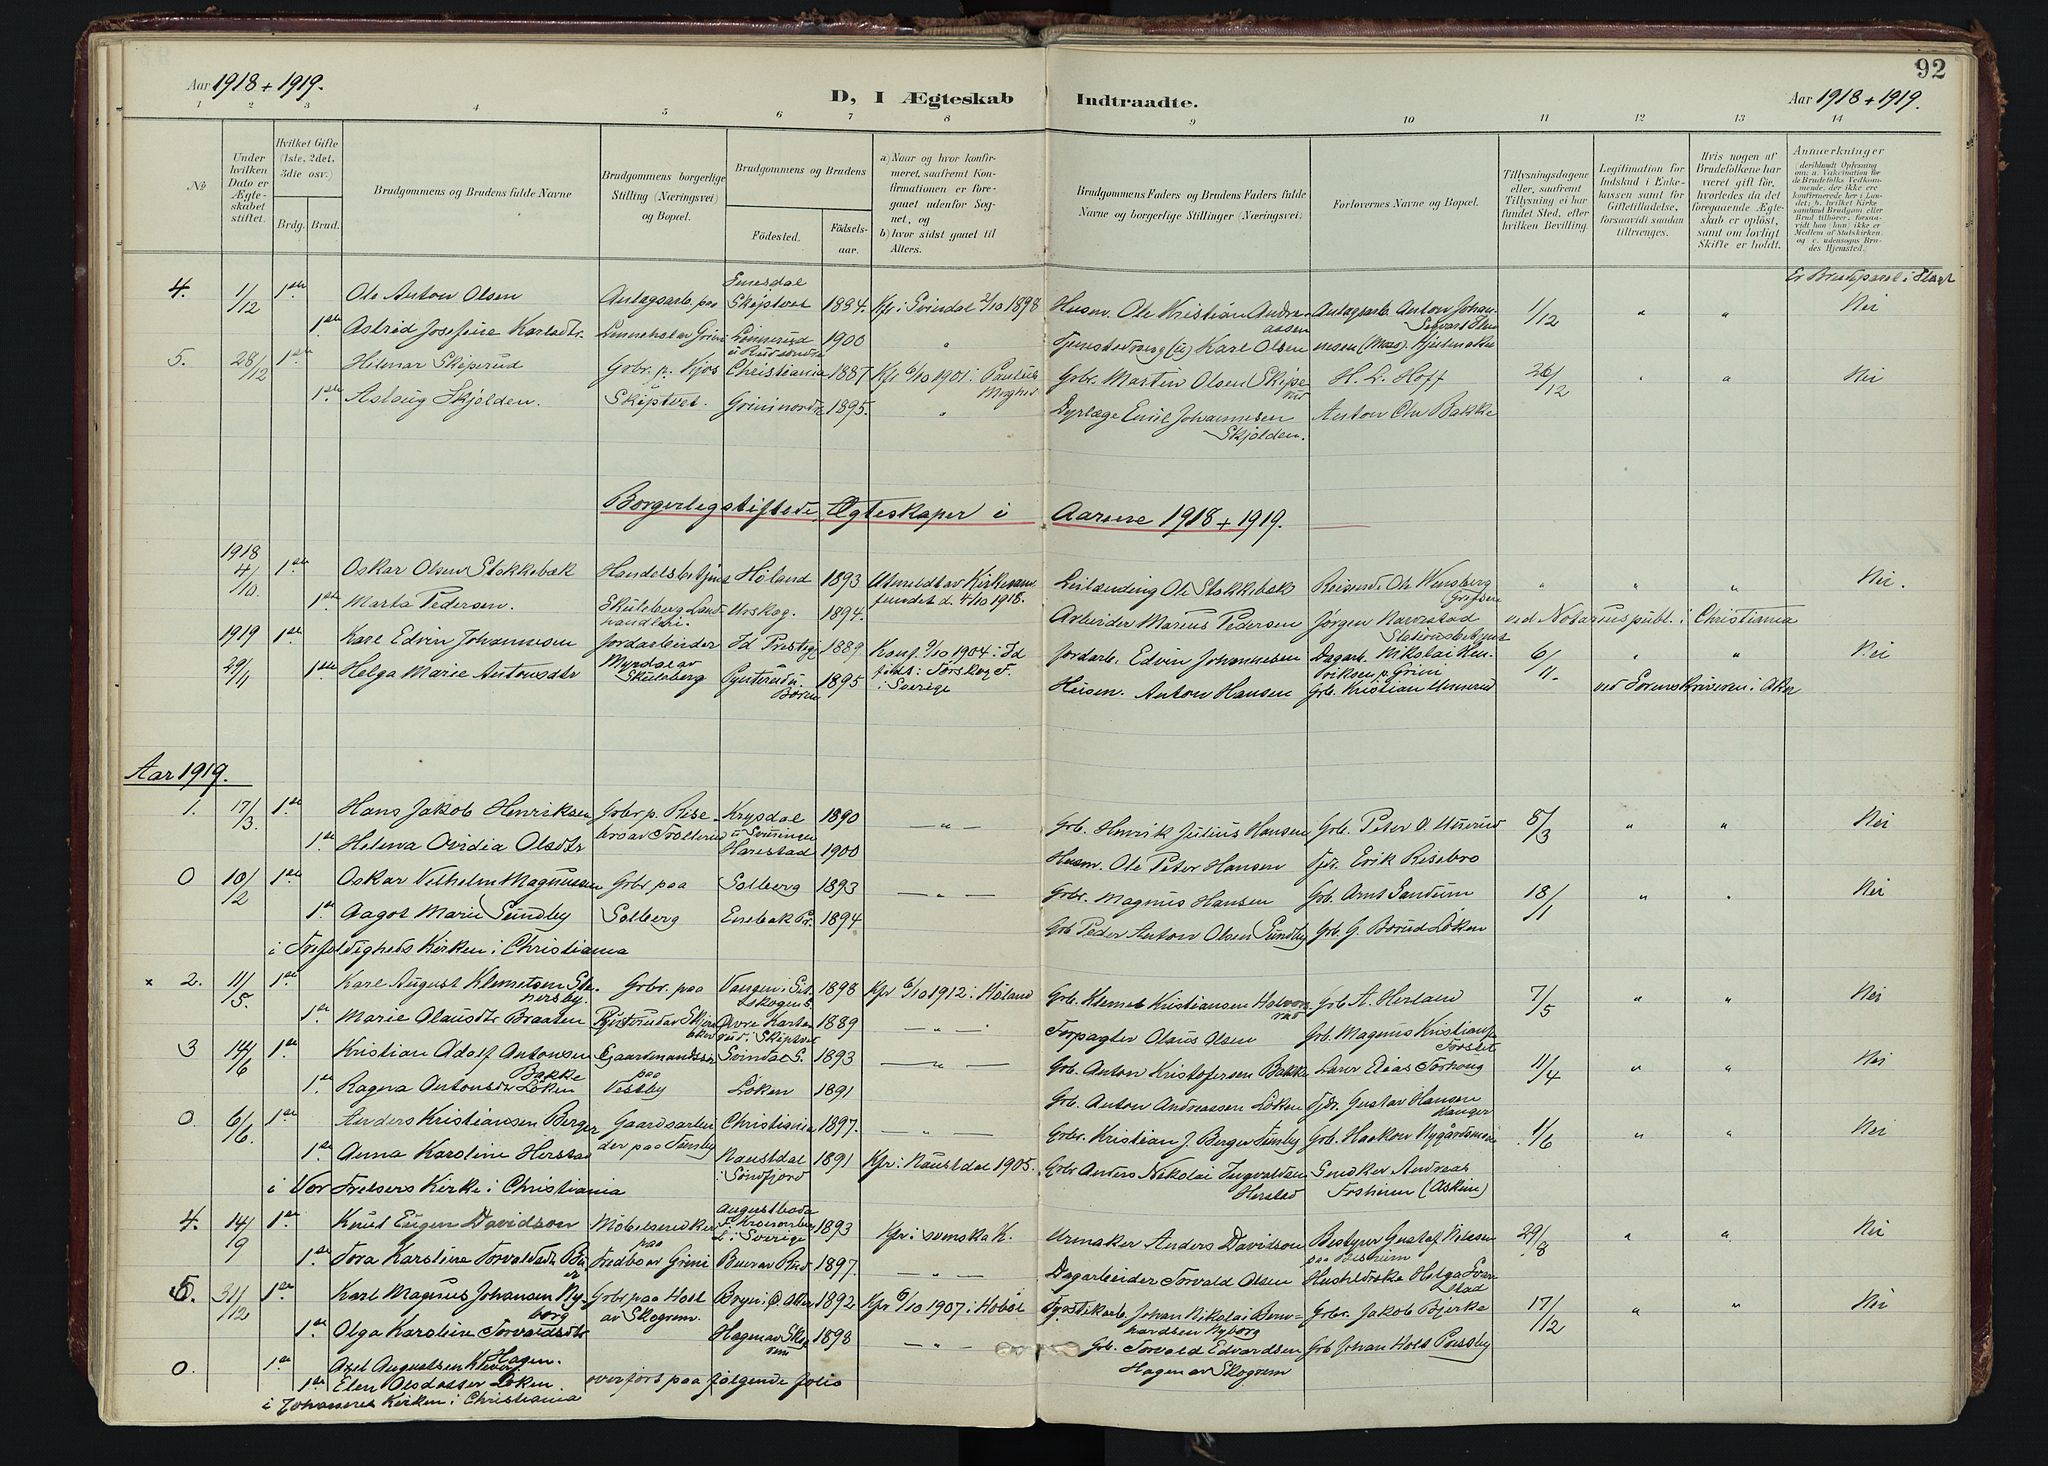 92
Aar 1918 + 1919.
D, I Ægteskab Indtraadte.
Aar 1918 + 1919.
1 2 3 4 5 6 7 8 9 10 11 12 13 14
No
Under hvilken Dato er Ægteskabet stiftet.
Hvilket Gifte (1ste, 2det, 3die osv.)
Brdg. Brud.
Brudgommens og Brudens fulde Navne
Brudgommens borgerlige Stilling (Næringsvei) og Bopæl.
Brudgommens og Brudens
Fødested.
Fødselsaar.
a) Naar og hvor konfirmeret, saafremt Konfirmationen er foregaaet udenfor Sognet, og
b) hvor sidst gaaet til Alters.
Brudgommens Faders og Brudens Faders fulde Navne og borgerlige Stillinger (Næringsvei)
Forlovernes Navne og Bopæl.
Tillysningsdagene eller, saafremt Tillysning ei har fundet Sted, efter hvilken Bevilling.
Legitimation for Indskud i Enkekassen samt for Giftetilladelse, forsaavidt saadan tiltrænges.
Hvis nogen af Brudefolkene har været gift før, hvorledes da det foregaaende Ægteskab er opløst, samt om lovligt Skifte er holdt.
Anmærkninger
4. 1/12 1ste Ole Anton Olsen Anlagsarb. paa Skiptvet 1884. Kfr. i Svindal 2/10 1898 Husm. Ole Kristian Andreassen Anlagsarb. Anton Johan 1/12 " " Nei
1ste Astrid Josefine Karlsdtr. 1900 " Karl Olsen
5. 28/12 1ste Hilmar Skiperud Grbr. p. Kjos Christiania 1887 Kfr 6/10 1901 i Paulus Menghed Grbr. Martin Olsen Skiperud H. L. Hoff 26/12 " " Nei
1ste Aslaug Skjolden. Skiptvet. 1895. " Dyrlæge Emil Johannesen Skjolden. Anton Chr Bakke
Borgerlig stiftede Ægteskaper i Aarene 1918 + 1919.
1918 4/10 1ste Oskar Olsen Stokkebæk Handelsbetjent Høland 1893 Utmeldt av Kirkesamfundet d. 4/10 1918. Leilænding Ole Stokkebæk Reisend. Ole " " " Nei
1ste Marta Pedersen. Skuleberg Landhandleri. Urskog. 1894. Arbeider Marius Pedersen Jørgen Stationsbetjent ved Notarius publ. i Christiania
1919 29/11 1ste Karl Edvin Johannesen Jordarbeider Id Prestegj 1889. Konf. 9/10 1904 i Id Jordarb. Edvin Johannesen Dagarb. Nikolai Henriksen p. Grini 6/11. " " Nei
1ste Helga Marie Antonsdtr Myrdal av Skuleberg 1895 født i Torskog F. i Sverige Husm. Anton Hansen Grb. Kristian Unnerud ved Sorenskriveren i Aker
Aar 1919.
1. 17/3. 1ste Hans Jakob Henriksen Grbr. p. Risebro av Krypdal 1890 — " — Grb. Henrik Julius Hansen Grb. Peter O. 5/3 " " Nei
1ste Helma Ovidia Olsdtr Harestad 1900 Husm. Ole Peter Hansen Fjr. Erik Risebro
0 10/2 1ste Oskar Vilhelm Magnussen Grbr. paa Solberg 1893 — " — Grbr. Magnus Hansen Grb. Arnt Sandum 18/1 " " Nei
1ste Aagot Marie Sundby Solberg Enebak Pr. 1894 Grb Peder Anton Olsen Sundby Grb. G. Børud Løken
i Trefoldigheds Kirken i Christiania
x 2. 11/5. 1ste Karl August Klemetsen Grbr. paa Vangen i 1898 Kfr 6/10 1912 i Høland Grb. Klemet Kristiansen Halvorsrud Grb A. Herland 7/5 " " Nei
1ste Marie Olausdtr Braaten Øvre Karterud i Skiptvet 1889 — " — Forpagter Olaus Olsen Grb. Magnus Kristiansen
3 14/6 1ste Kristian Adolf Antonsen Bakke Gaardmandssøn paa Svindal S. 1893 — " — Grb. Anton Kristofersen Bakke Lærer Elias Torhoug 11/4 " " Nei
1ste Ragna Antonsdtr Løken Vestby Løken 1891 Grb. Anton Andreassen Løken Fjdr. Gustav Hansen
0. 6/6. 1ste Anders Kristiansen Berger Gaardsarbeider paa Tunby Christiania 1897. — " — Grbr. Kristian J. Berger Grb. Haakon 1/6 " " Nei
1ste Anna Karoline Herstad Naustdal i Søndfjord 1891 Kfr. i Naustdal 1905. Grbr Anders Nikolai Ingvaldsen Herstad Snedker Andreas Fosheim (Askim)
i Vor Frelsers Kirke i Christiania
4. 14/9 1ste Knut Eugen Davidson Møbelsnedker paa i Sverige 1893 Kfr. i svenska K. Urmaker Anders Davidson Bestyrer Gustaf Nilsen 29/8 " " Nei
1ste Tora Karstine Torvaldsdtr Fredbo av Grini 1897. — " — Dagarbeider Torvald Olsen Helga
5. 31/12 1ste Karl Magnus Johansen Nyborg Grbr. paa Holt av Skogrem. Bryn i Ø. Aker 1892 Kfr 6/10 1907 i Hobøl Fyrstikarb. Johan Nikolai Bernhardsen Nyborg Grbr. Jakob Bjerke 17/12 " " Nei
1ste Olga Karoline Torvaldsdtr Hagen. Hagen av Skogrem 1898 — " — Grb. Torvald Edvardsen Hagen av Skogrem Grb Johan Holt
0. 1ste Axel Augustsen
1ste Elen Olsdatter Løken overført paa følgende folio
i Johannes Kirken i Christiania